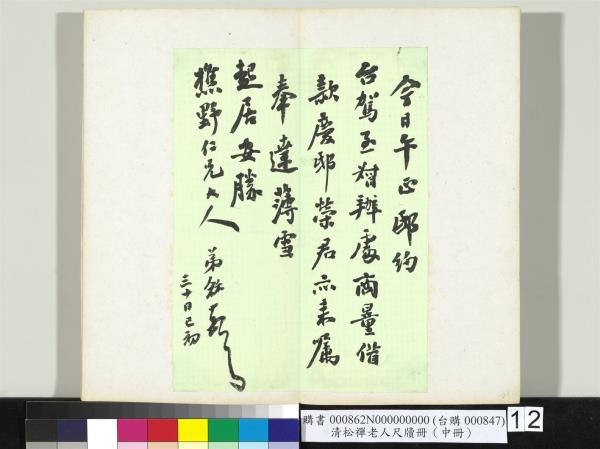 今日午正邸約
台駕至督辦處商量借
款慶邸榮君亦來囑
奉達薄雪
起居安勝
樵野仁兄大人
弟龢頓首
三十日巳初
購書 000862N000000000 (台購 000847)
清松禪老人尺牘冊（中冊）
12